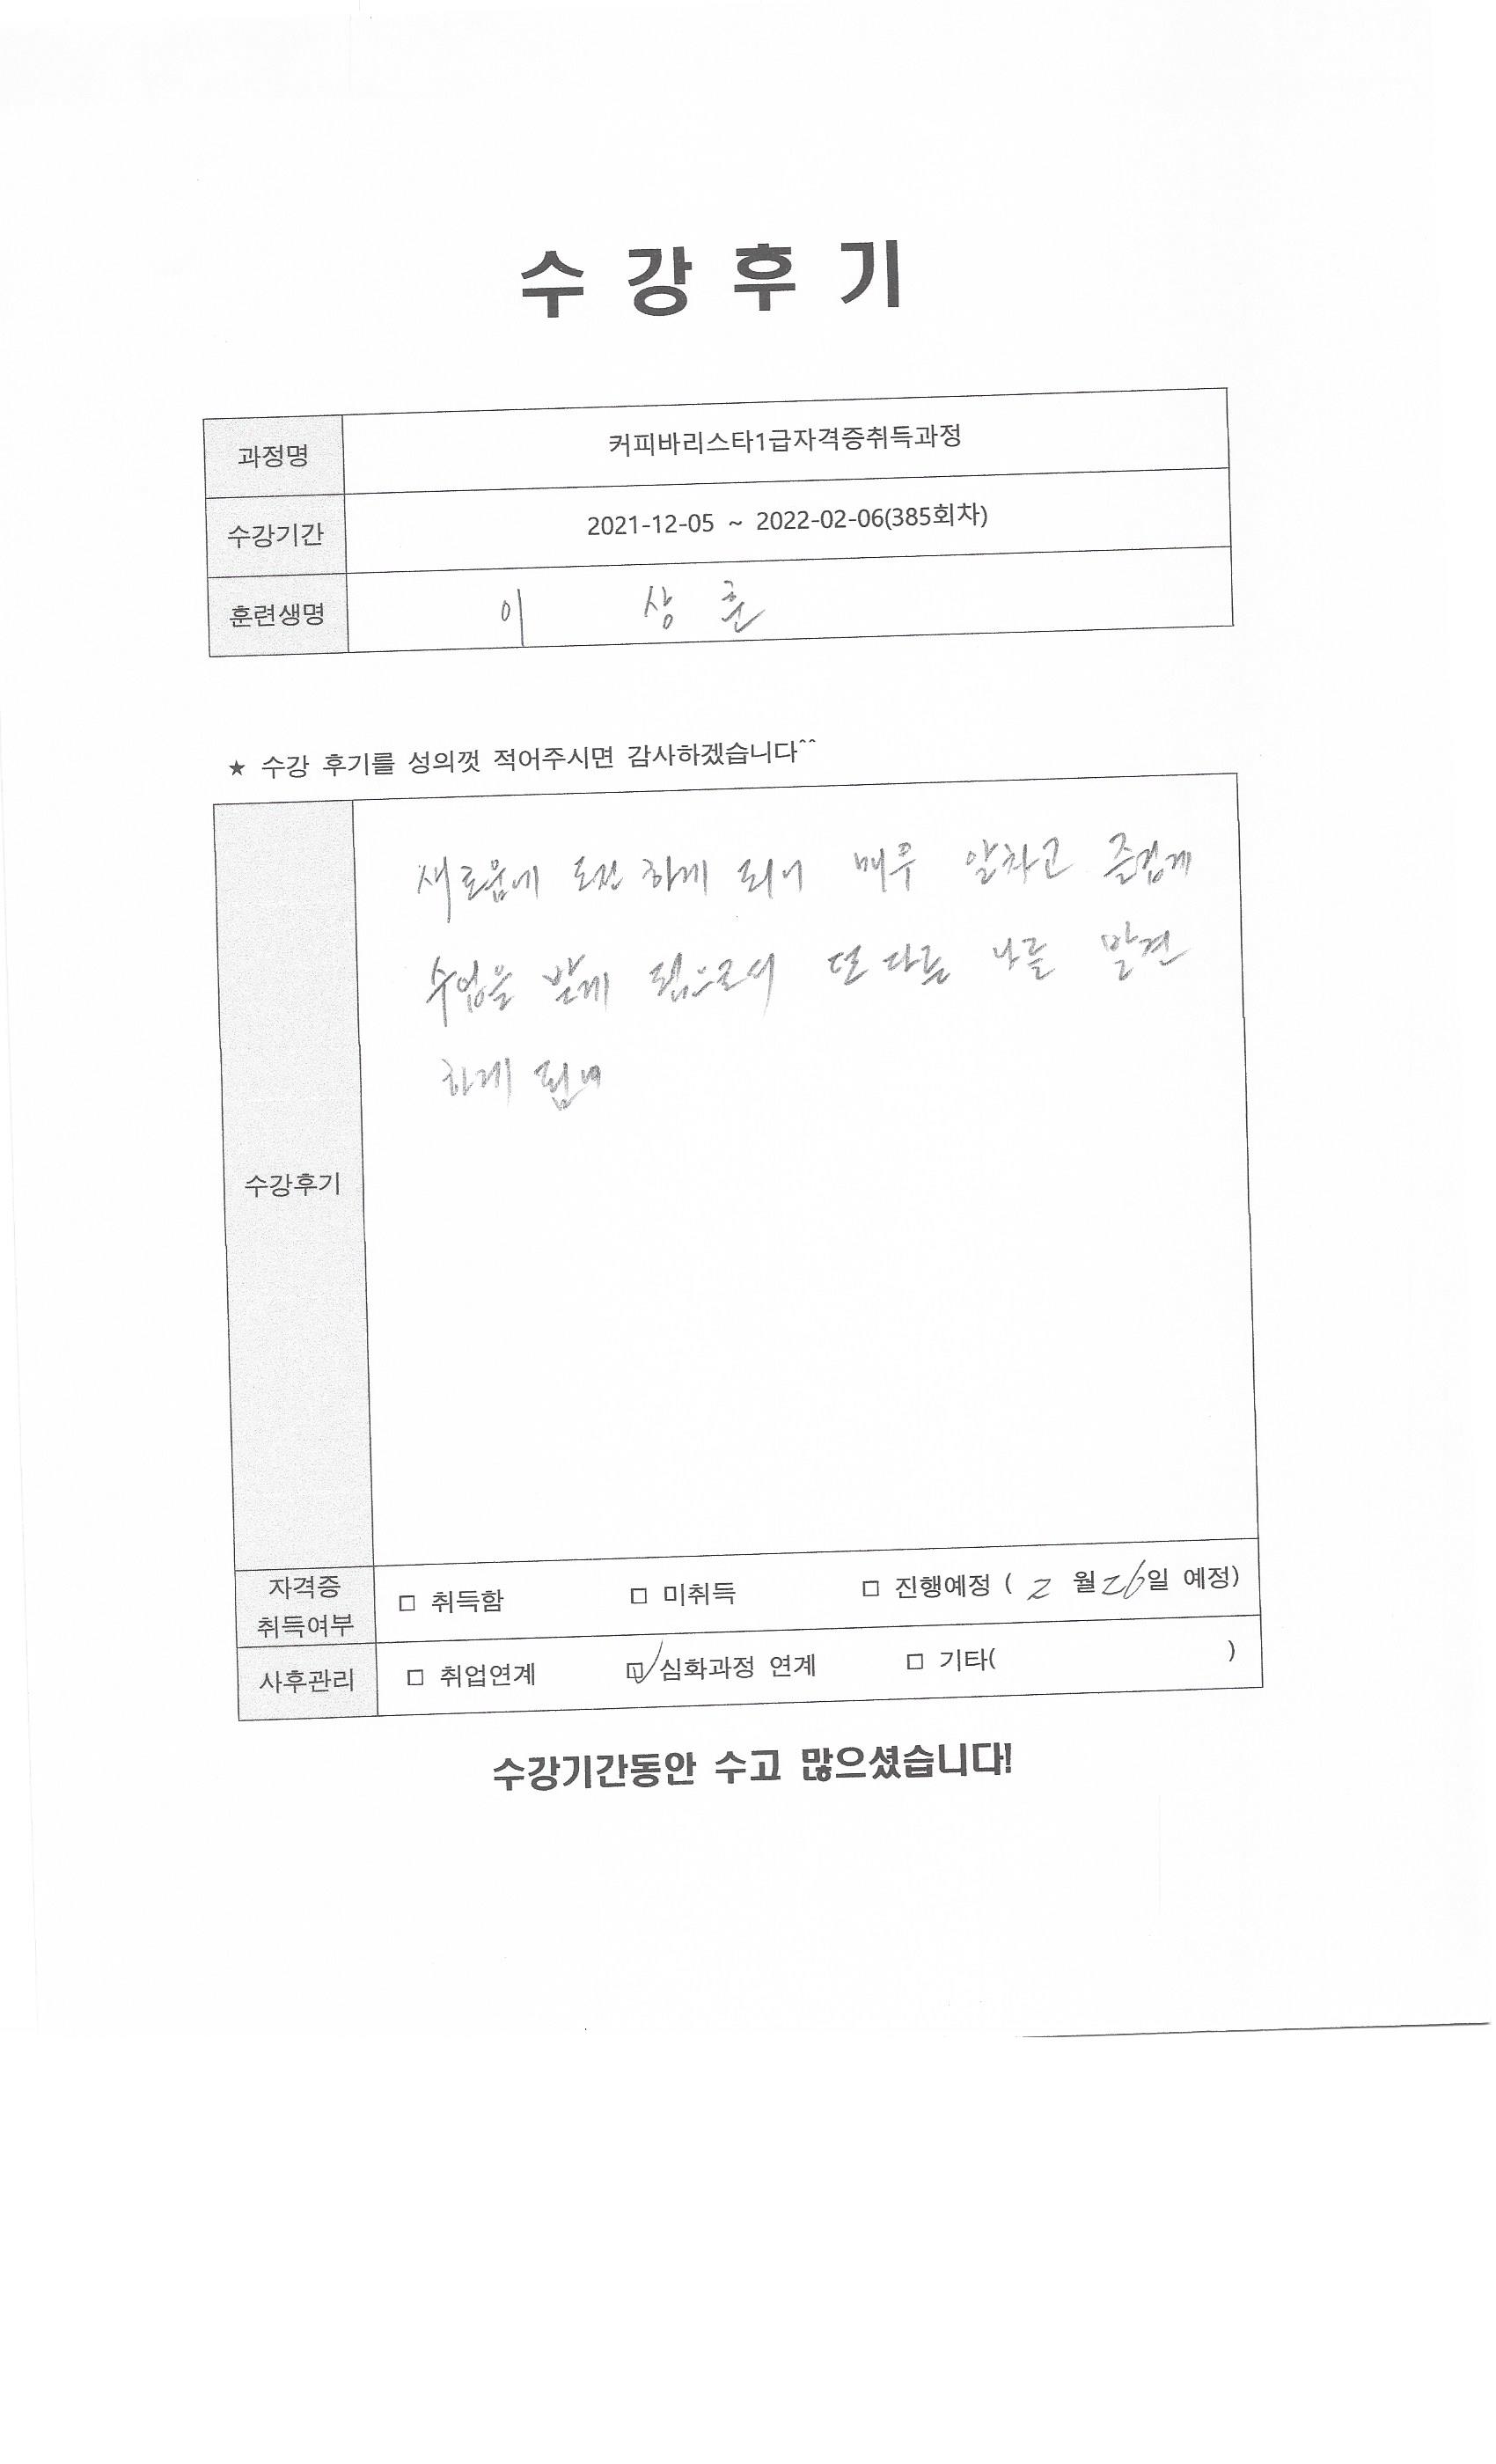 수 강 후 기
과정명 커피바리스타1급자격증취득과정
수강기간 2021-12-05 ~ 2022-02-06(385회차)
훈련생명 이 상 훈
★ 수강 후기를 성의껏 적어주시면 감사하겠습니다^^
수강후기
새로움에 도전 하게 되어 매우 알차고 즐겁게
수업을 받게 됨으로서 또 다른 나를 발견
하게 됨
자격증 취득여부 □ 취득함 □ 미취득 □ 진행예정 ( 2 월 26일 예정)
사후관리 □ 취업연계 ☑ 심화과정 연계 □ 기타( )
수강기간동안 수고 많으셨습니다!